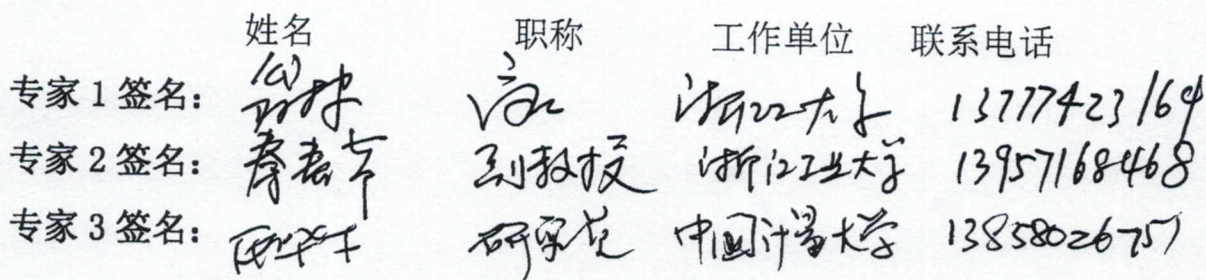 姓名 职称 工作单位 联系电话
专家1签名： 浙江大学 13777423164
专家2签名：秦 副教授 浙江工业大学 13957168468
专家3签名： 研究员 中国计量大学 13858026751